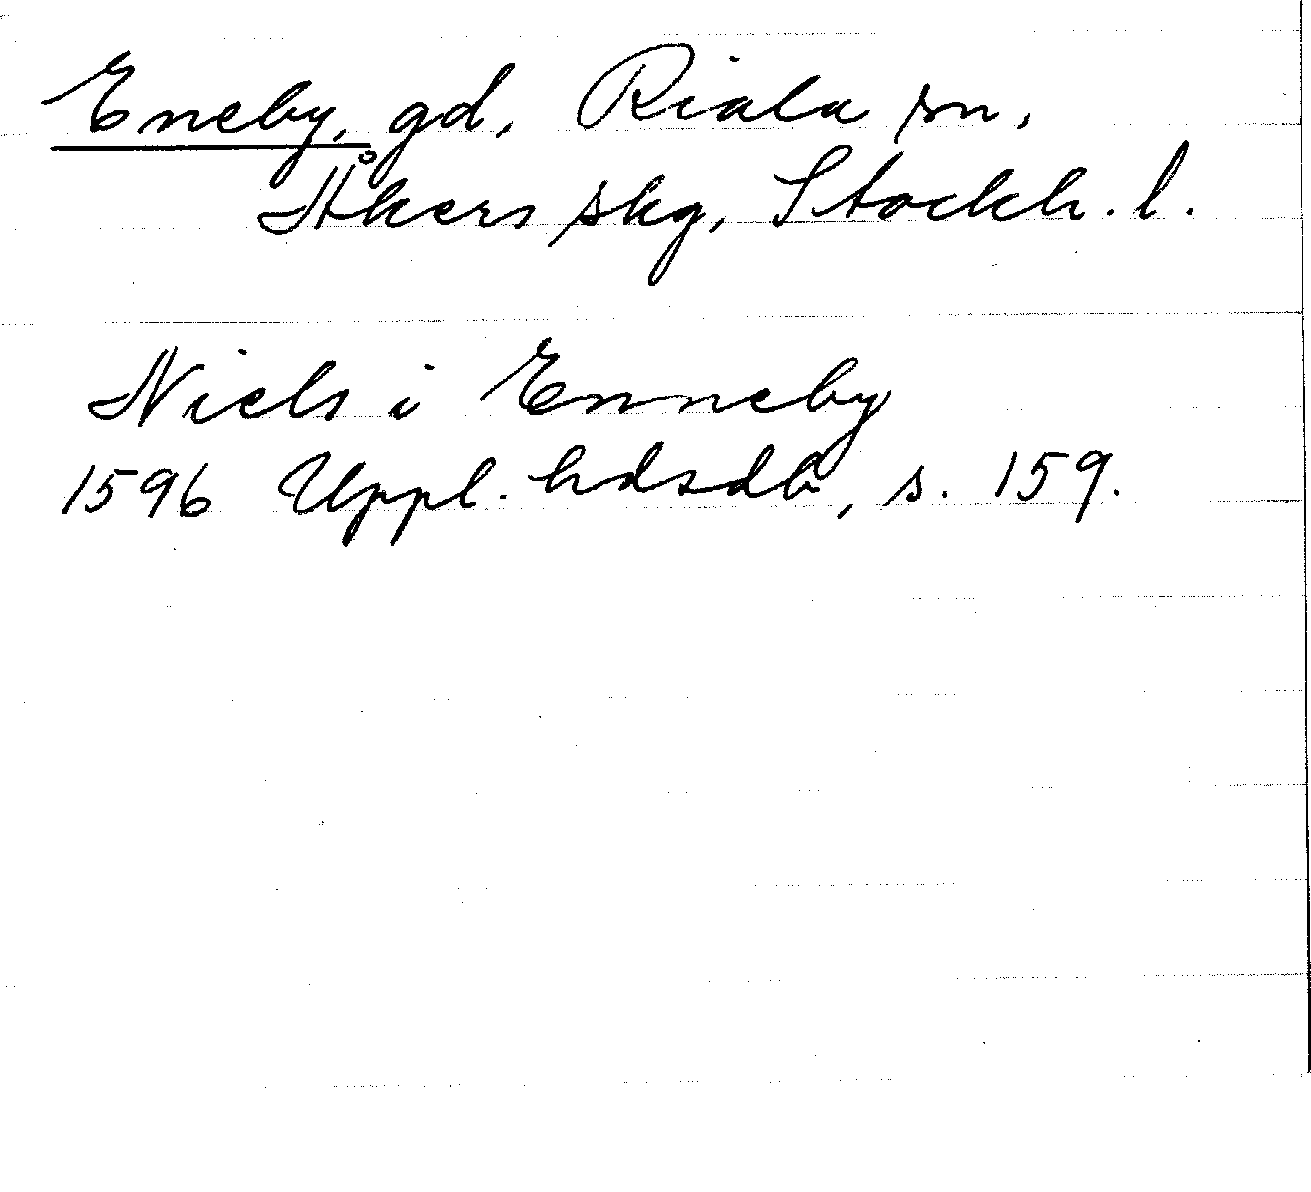 Eneby, gd, Riala sn,
Åkers skg, Stockh. l.
Niels i Enneby
1596 Uppl. hdsdb, s. 159.